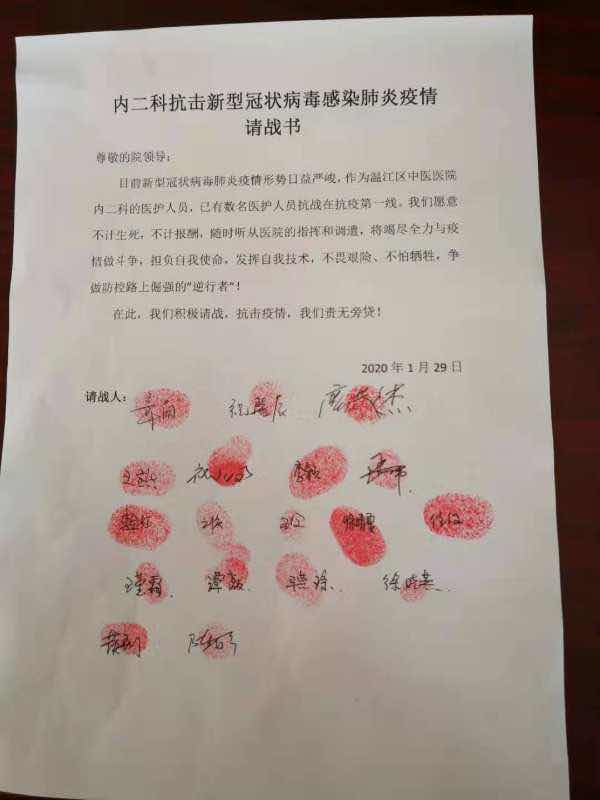 内二科抗击新型冠状病毒感染肺炎疫情
请战书
尊敬的院领导：
目前新型冠状病毒肺炎疫情形势日益严峻，作为温江区中医医院
内二科的医护人员，已有数名医护人员抗战在抗疫第一线。我们愿意
不计生死，不计报酬，随时听从医院的指挥和调遣，将竭尽全力与疫
情做斗争，担负自我使命，发挥自我技术，不畏艰险、不怕牺牲，争
做防控路上倔强的"逆行者"！
在此，我们积极请战，抗击疫情，我们责无旁贷！
2020 年 1 月 29 日
请战人：